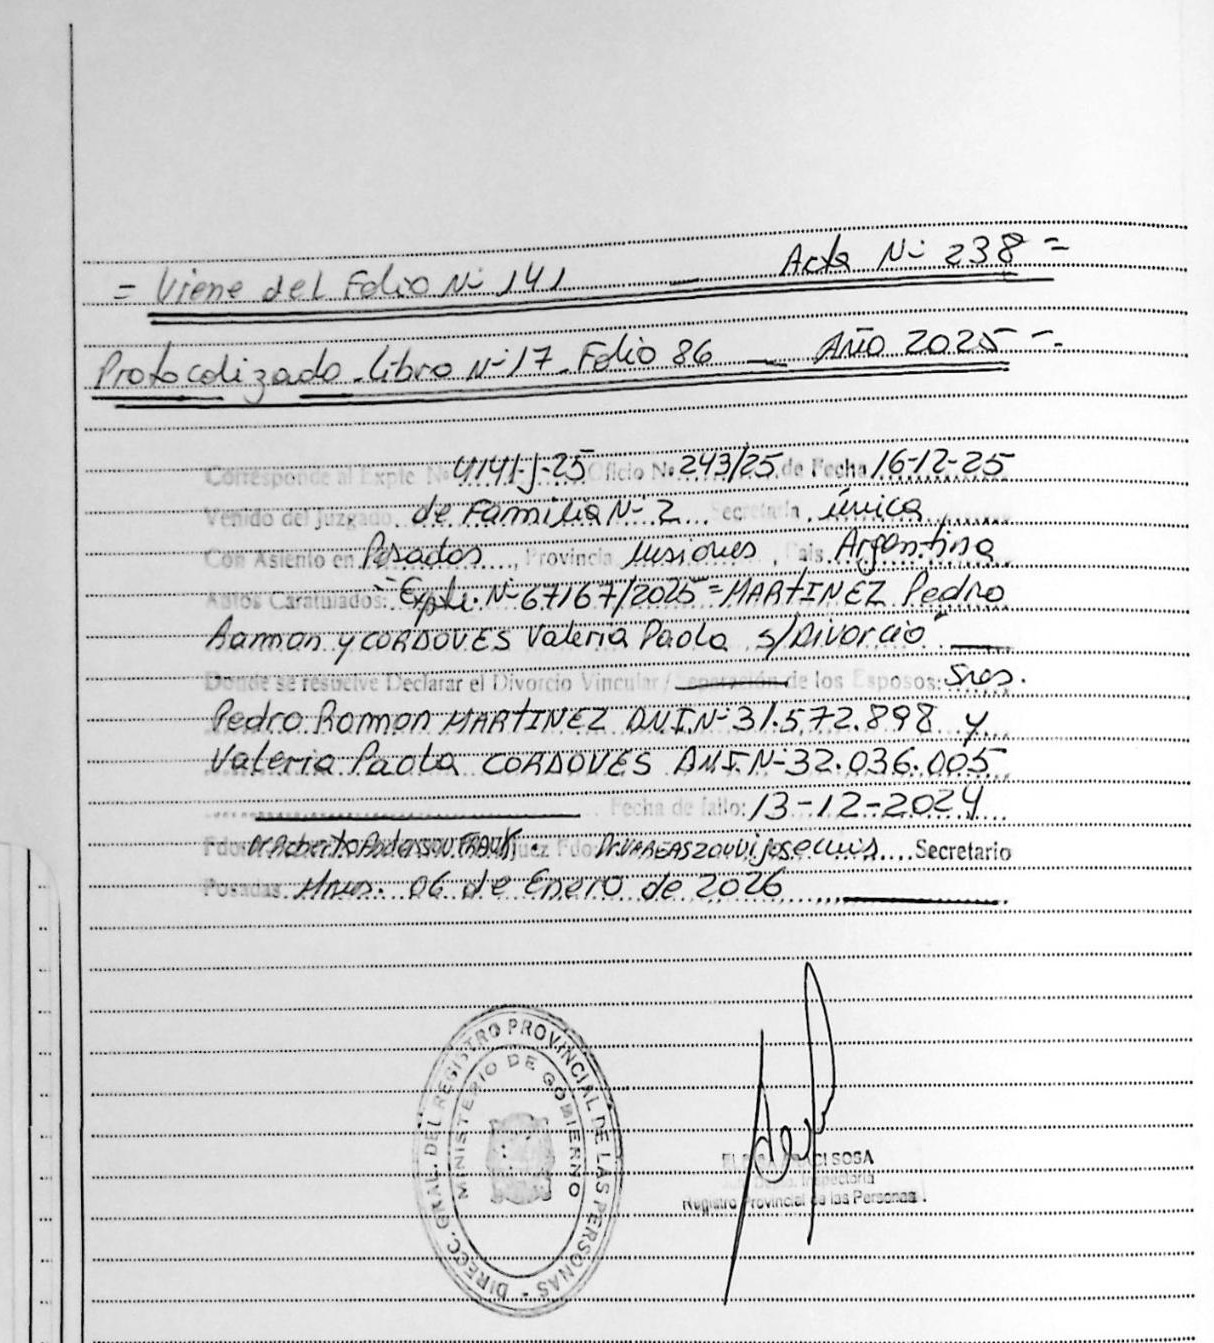 = Viene del Folio Nº 141 — Acta Nº 238 =
Protocolizado - Libro Nº 17 - Folio 86 — Año 2025 -
Corresponde al Expte Nº 4141-J-25 Oficio Nº 243/25 de Fecha 16-12-25
Venido del Juzgado de Familia Nº 2 Secretaria única
Con Asiento en Posadas, Provincia Misiones, Pais Argentina
Autos Caratulados: "Expte. Nº 67167/2025 = MARTINEZ Pedro
Ramon y CORDOVES Valeria Paola s/Divorcio"
Donde se resuelve Declarar el Divorcio Vincular / Separación de los Esposos: Sres.
Pedro Ramon MARTINEZ D.N.I.Nº 31.572.898 y
Valeria Paola CORDOVES D.N.I.Nº 32.036.005
Fecha de fallo: 13-12-2024
Fdo: Dr. Roberto FRANK. Juez Fdo: Dr. Jose Luis Secretario
Posadas Mnes. 06 de Enero de 2026
DIRECC. GRAL. DEL REGISTRO PROVINCIAL DE LAS PERSONAS -
MINISTERIO DE GOBIERNO
SOSA
Inspectoria
Registro Provincial de las Personas